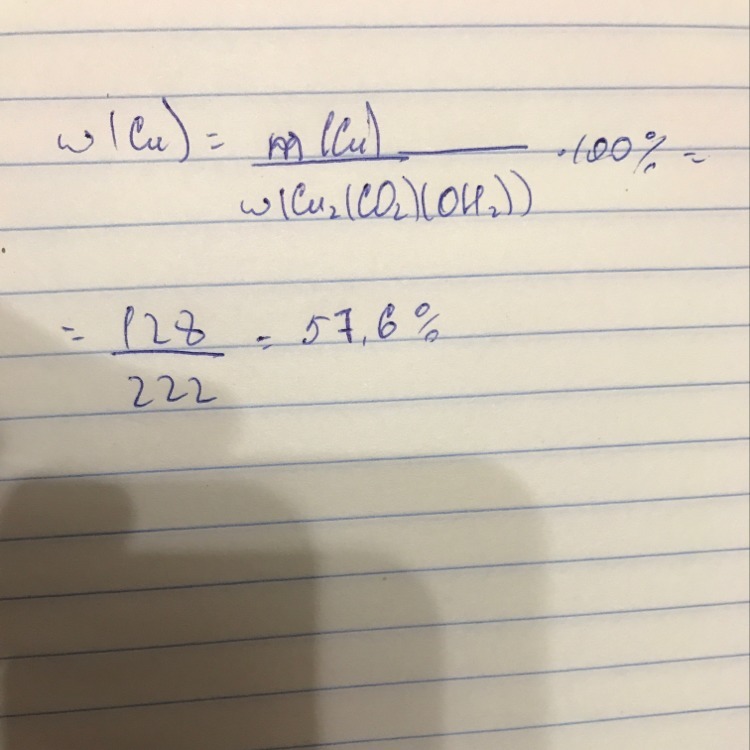 w(Cu) = M(Cu) / w(Cu₂(CO₂)(OH₂)) · 100% =
= 128 / 222 = 57,6%